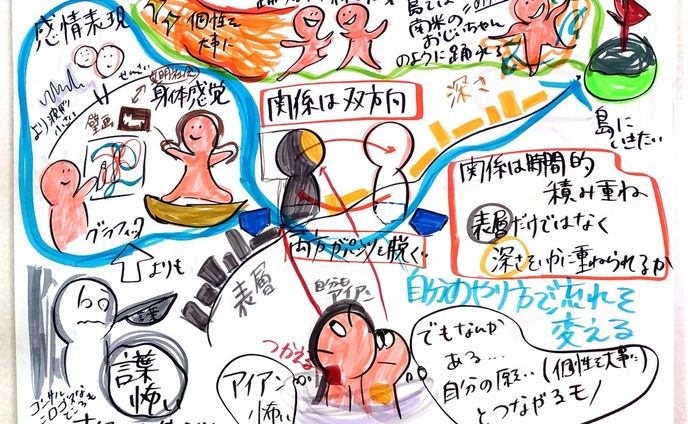 感情表現
個性を
大事に
島では
南米の
おじいちゃん
のように踊れる
身体感覚
壁画
グラフィック
よりも
関係は双方向
深さ
島に
いきたい
関係は時間的
積み重ね
表層だけではなく
深さをいかに重ねられるか
両方がパンツを脱ぐ
表層
自分も
アイアン
つかえる
アイアン
怖い
自分のやり方で流れを
変える
でもなんか
ある…
自分の願い…(個性を大事に)
とつながるモノ
怖い